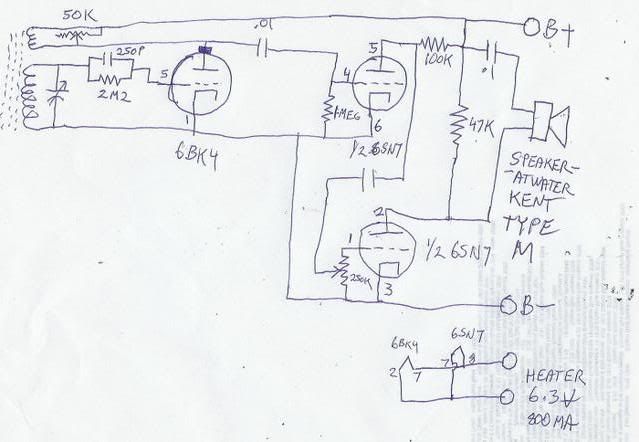 50K
.01
B+
250P
5
5
100K
.1
4
2M2
1MEG
6
47K
1
6BK4
1/2 6SN7
SPEAKER-
ATWATER
KENT
TYPE
M
2
1
1/2 6SN7
250K
3
B-
6BK4
6SN7
2
7
7
8
HEATER
6.3V
800MA